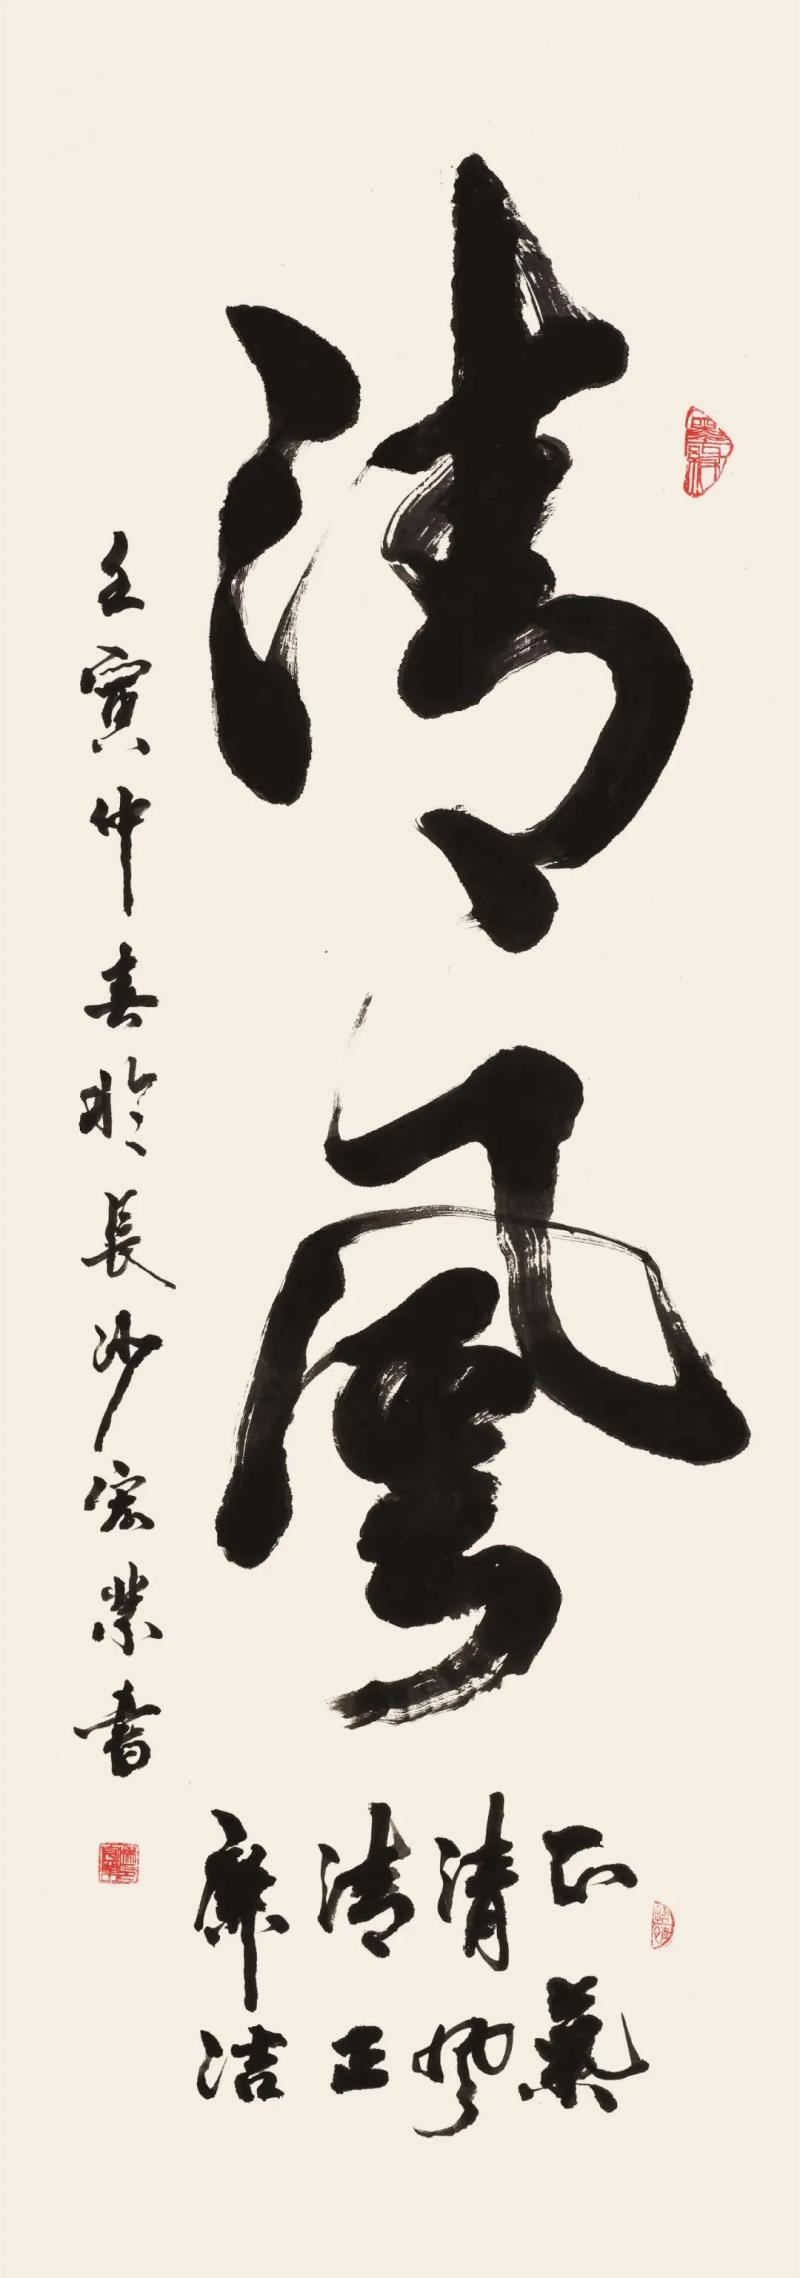 清風
正氣
清風
清正
廉洁
壬寅仲春於長沙宏業書